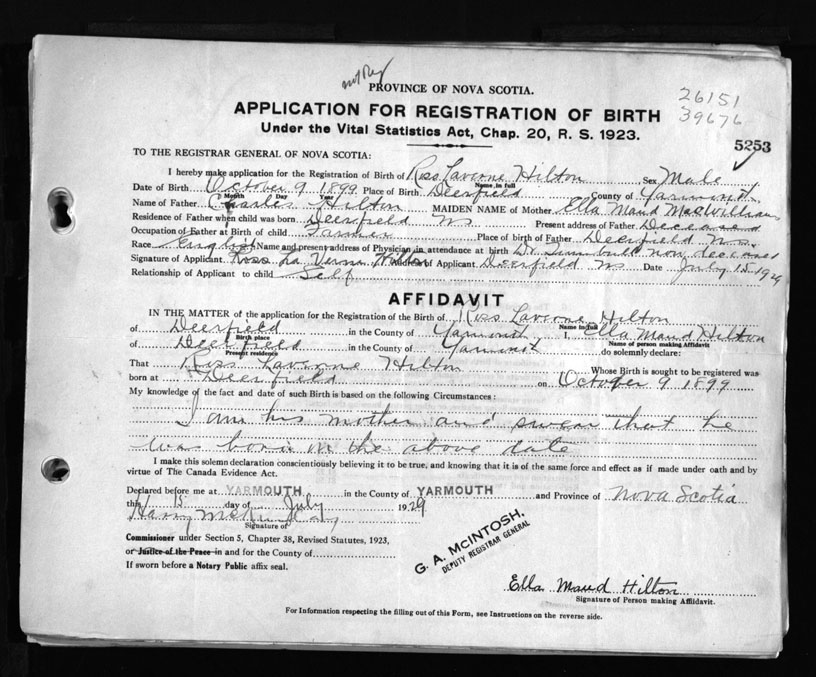 not Reg
PROVINCE OF NOVA SCOTIA.
26151
39676
APPLICATION FOR REGISTRATION OF BIRTH
Under the Vital Statistics Act, Chap. 20, R. S. 1923.
5253
TO THE REGISTRAR GENERAL OF NOVA SCOTIA:
I hereby make application for the Registration of Birth of Ross Laverne Hilton Sex Male
Name in full
Date of Birth October 9 1899 Place of Birth Deerfield County of Yarmouth
Month Day Year
Name of Father Charles Hilton MAIDEN NAME of Mother Ella Maud MacWilliams
Residence of Father when child was born Deerfield NS Present address of Father Deceased
Occupation of Father at Birth of child Farmer Place of birth of Father Deerfield N.S.
Race English Name and present address of Physician in attendance at birth Dr now deceased
Signature of Applicant Ross La Verne Hilton Address of Applicant Deerfield NS Date July 15 1929
Relationship of Applicant to child Self
AFFIDAVIT
IN THE MATTER of the application for the Registration of the Birth of Ross Laverne Hilton
Name in full
of Deerfield in the County of Yarmouth I, Ella Maud Hilton
Birth place Name of person making Affidavit
of Deerfield in the County of Yarmouth do solemnly declare:
Present residence
That Ross Laverne Hilton Whose Birth is sought to be registered was
born at Deerfield on October 9 1899
My knowledge of the fact and date of such Birth is based on the following Circumstances:
I am his mother and swear that he
was born on the above date
I make this solemn declaration conscientiously believing it to be true, and knowing that it is of the same force and effect as if made under oath and by
virtue of The Canada Evidence Act.
Declared before me at YARMOUTH in the County of YARMOUTH and Province of Nova Scotia
this 15 day of July 1929
Harry
Signature of
Commissioner under Section 5, Chapter 38, Revised Statutes, 1923,
or Justice of the Peace in and for the County of
If sworn before a Notary Public affix seal.
G. A. McINTOSH,
DEPUTY REGISTRAR GENERAL
Ella Maud Hilton
Signature of Person making Affidavit.
For Information respecting the filling out of this Form, see Instructions on the reverse side.